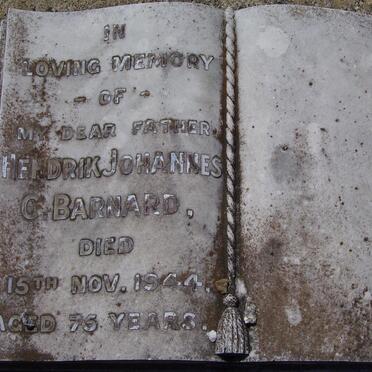 IN
LOVING MEMORY
- OF -
MY DEAR FATHER
HENDRIK JOHANNES
C. BARNARD,
DIED
15TH NOV. 1944.
AGED 75 YEARS.